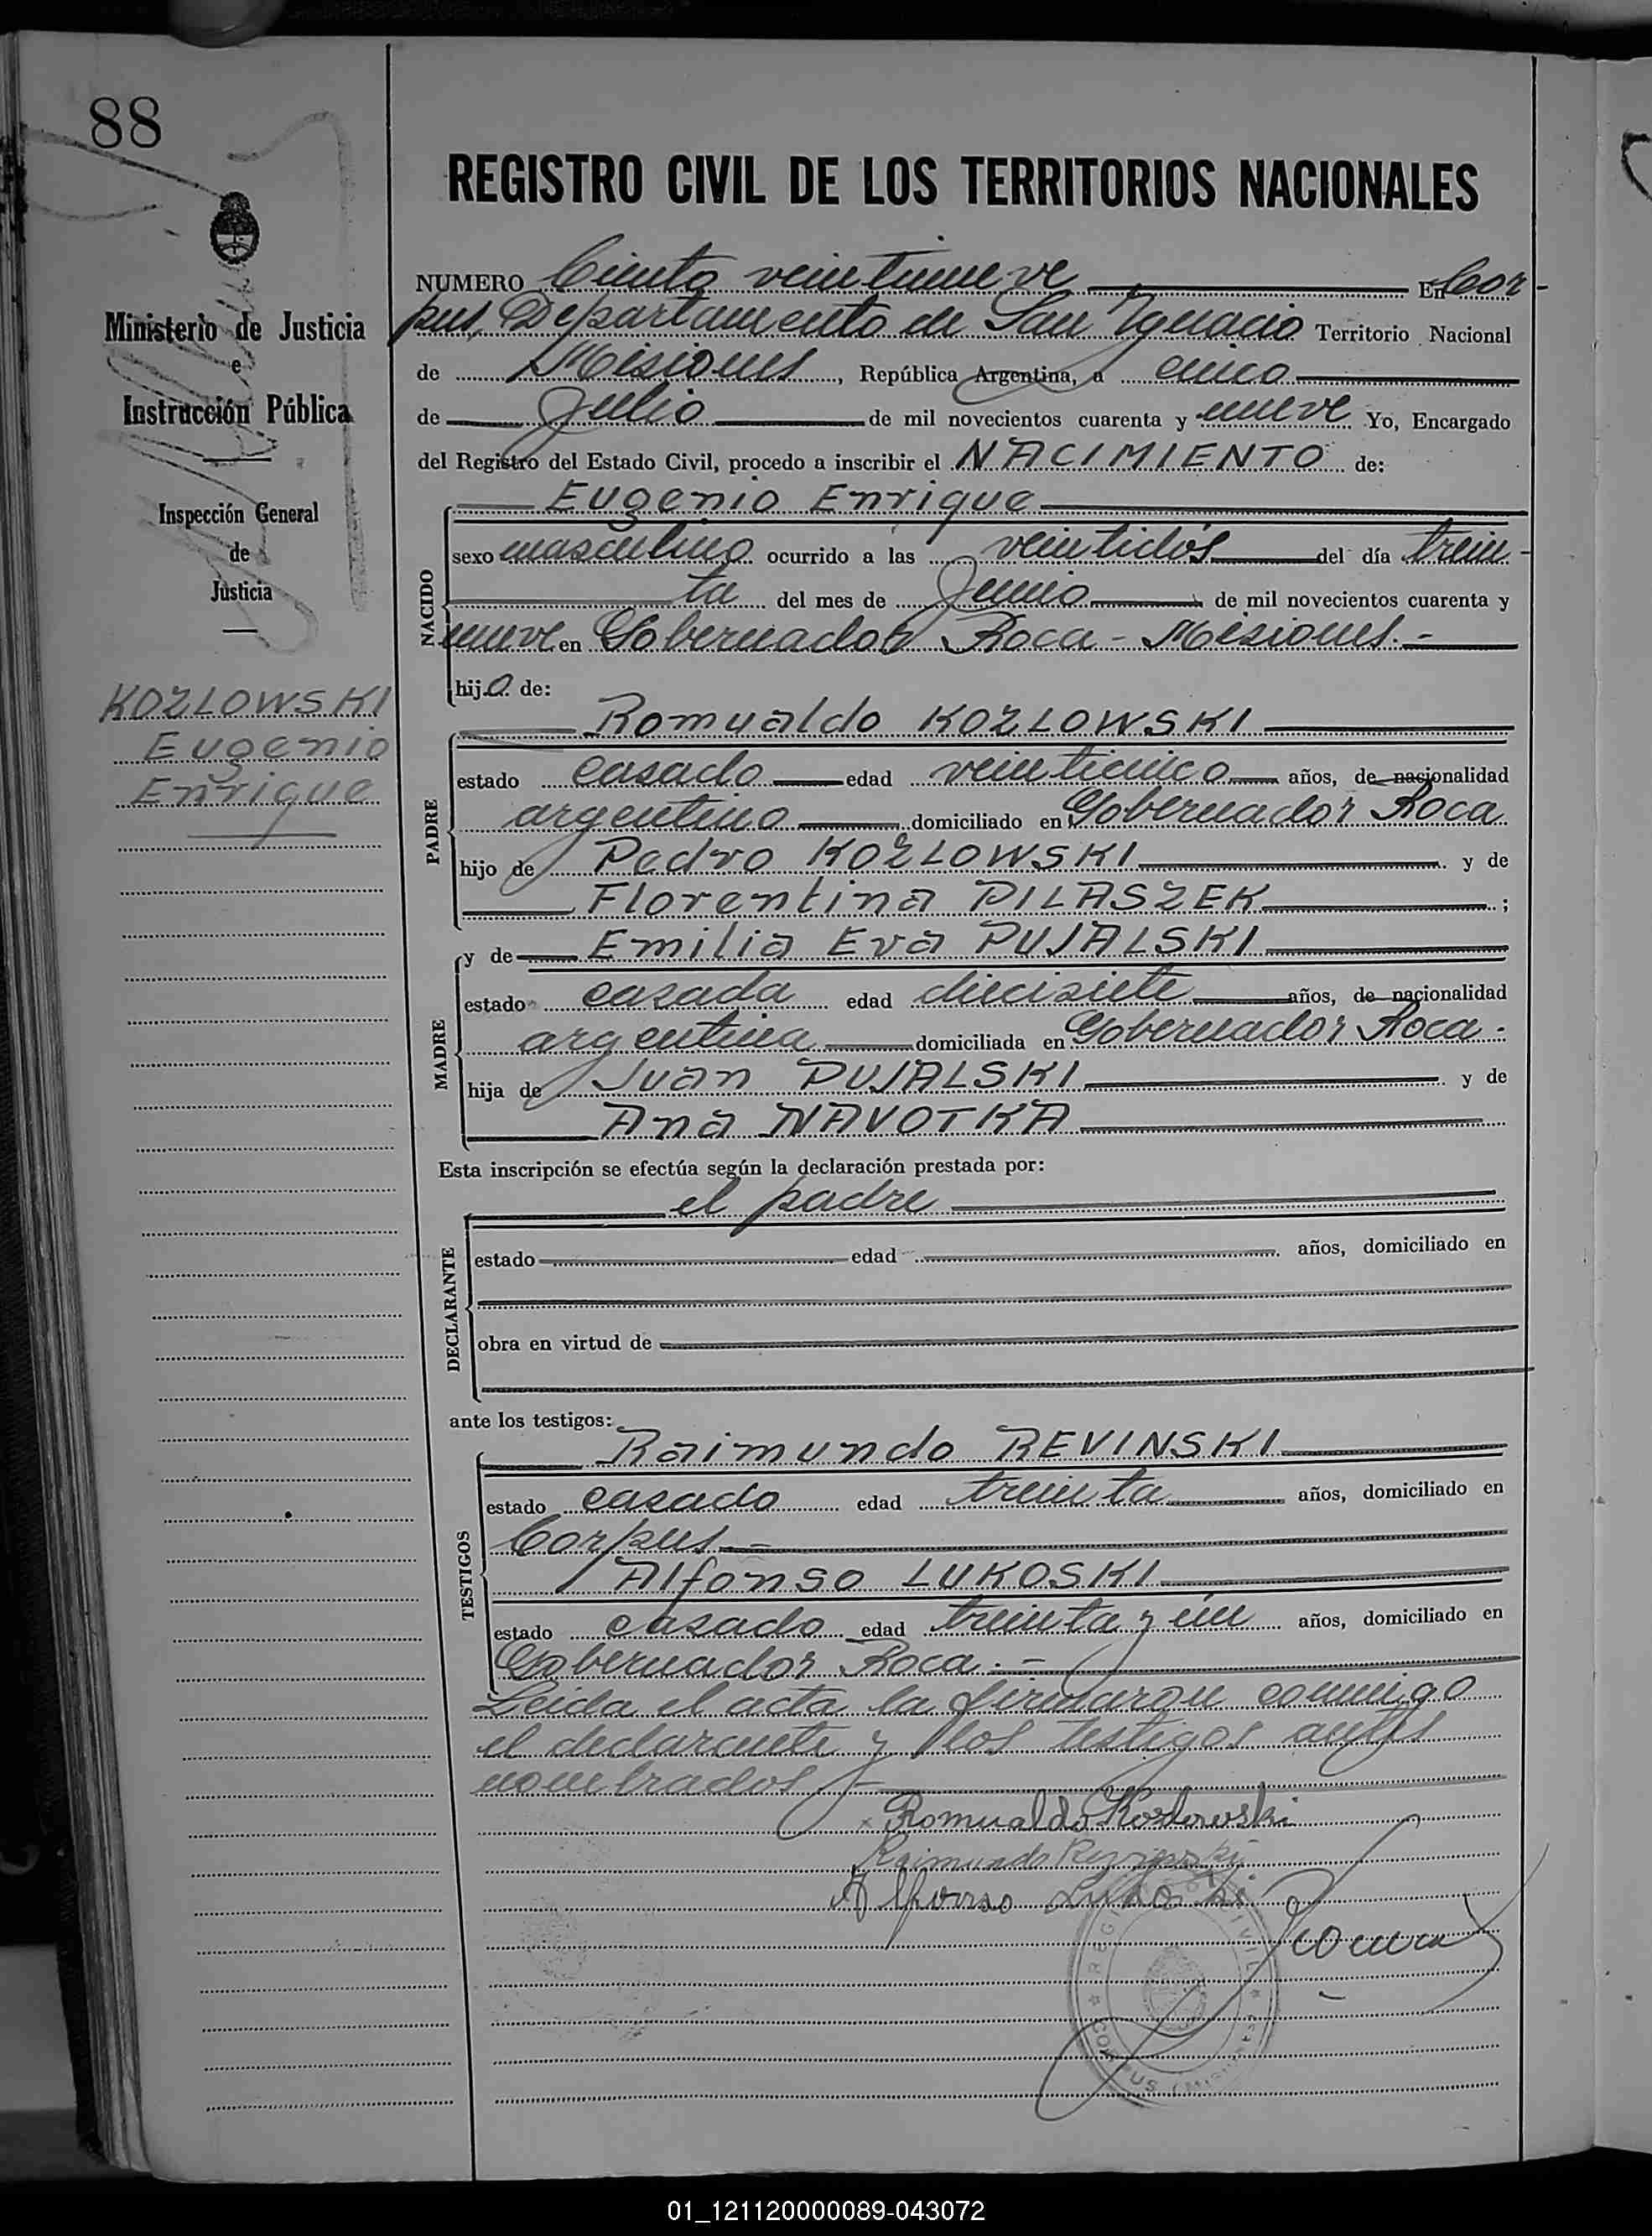 88
REGISTRO CIVIL DE LOS TERRITORIOS NACIONALES
Ministerio de Justicia
e
Instrucción Pública
Inspección General
de
Justicia
KOZLOWSKI
Eugenio
Enrique
NUMERO Ciento veintinueve En Cor-
pus, Departamento de San Ignacio Territorio Nacional
de Misiones, República Argentina, a cinco
de Julio de mil novecientos cuarenta y nueve Yo, Encargado
del Registro del Estado Civil, procedo a inscribir el NACIMIENTO de:
Eugenio Enrique
NACIDO
sexo masculino ocurrido a las veintidós del día trein-
ta del mes de Junio de mil novecientos cuarenta y
nueve en Gobernador Roca - Misiones.-
hijo de:
Romualdo KOZLOWSKI
PADRE
estado casado edad veinticinco años, de nacionalidad
argentino domiciliado en Gobernador Roca
hijo de Pedro KOZLOWSKI y de
Florentina PILASZEK ;
y de Emilia Eva PUJALSKI
MADRE
estado casada edad diecisiete años, de nacionalidad
argentina domiciliada en Gobernador Roca.
hija de Juan PUJALSKI y de
Ana NAVOTKA
Esta inscripción se efectúa según la declaración prestada por:
el padre
DECLARANTE
estado edad años, domiciliado en
obra en virtud de
ante los testigos:
Raimundo REVINSKI
TESTIGOS
estado casado edad treinta años, domiciliado en
Corpus.-
Alfonso LUKOSKI
estado casado edad treinta y un años, domiciliado en
Gobernador Roca.-
Leída el acta la firmaron conmigo
el declarante y los testigos antes
nombrados.-
Romualdo Kozlowski
Raimundo
Alfonso Lukoski
REGISTRO CIVIL
CORPUS (Misiones)
01_121120000089-043072